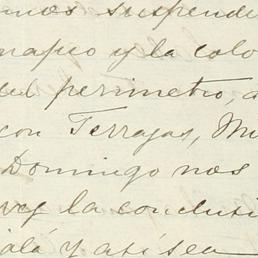 mos suspendi
mapeo y la colo
del perimetro, a
con Terrazas, Mu
Domingo nos
vez la conclusi
alá y así sea